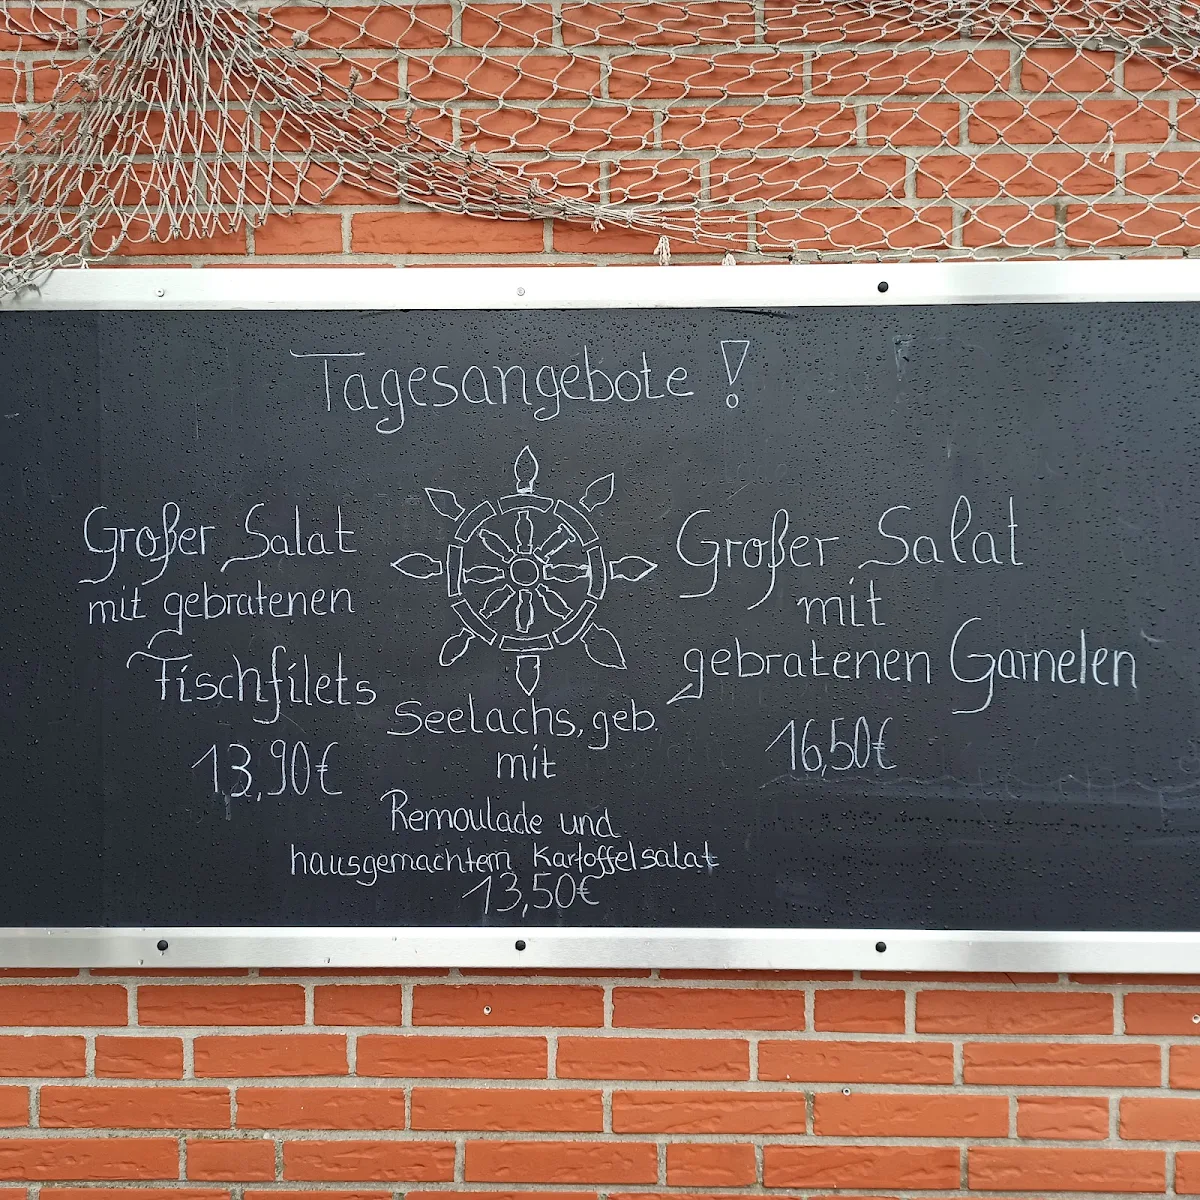 Tagesangebote!
Großer Salat
mit gebratenen
Fischfilets
13,90€
Seelachs, geb.
mit
Remoulade und
hausgemachtem Kartoffelsalat
13,50€
Großer Salat
mit
gebratenen Garnelen
16,50€